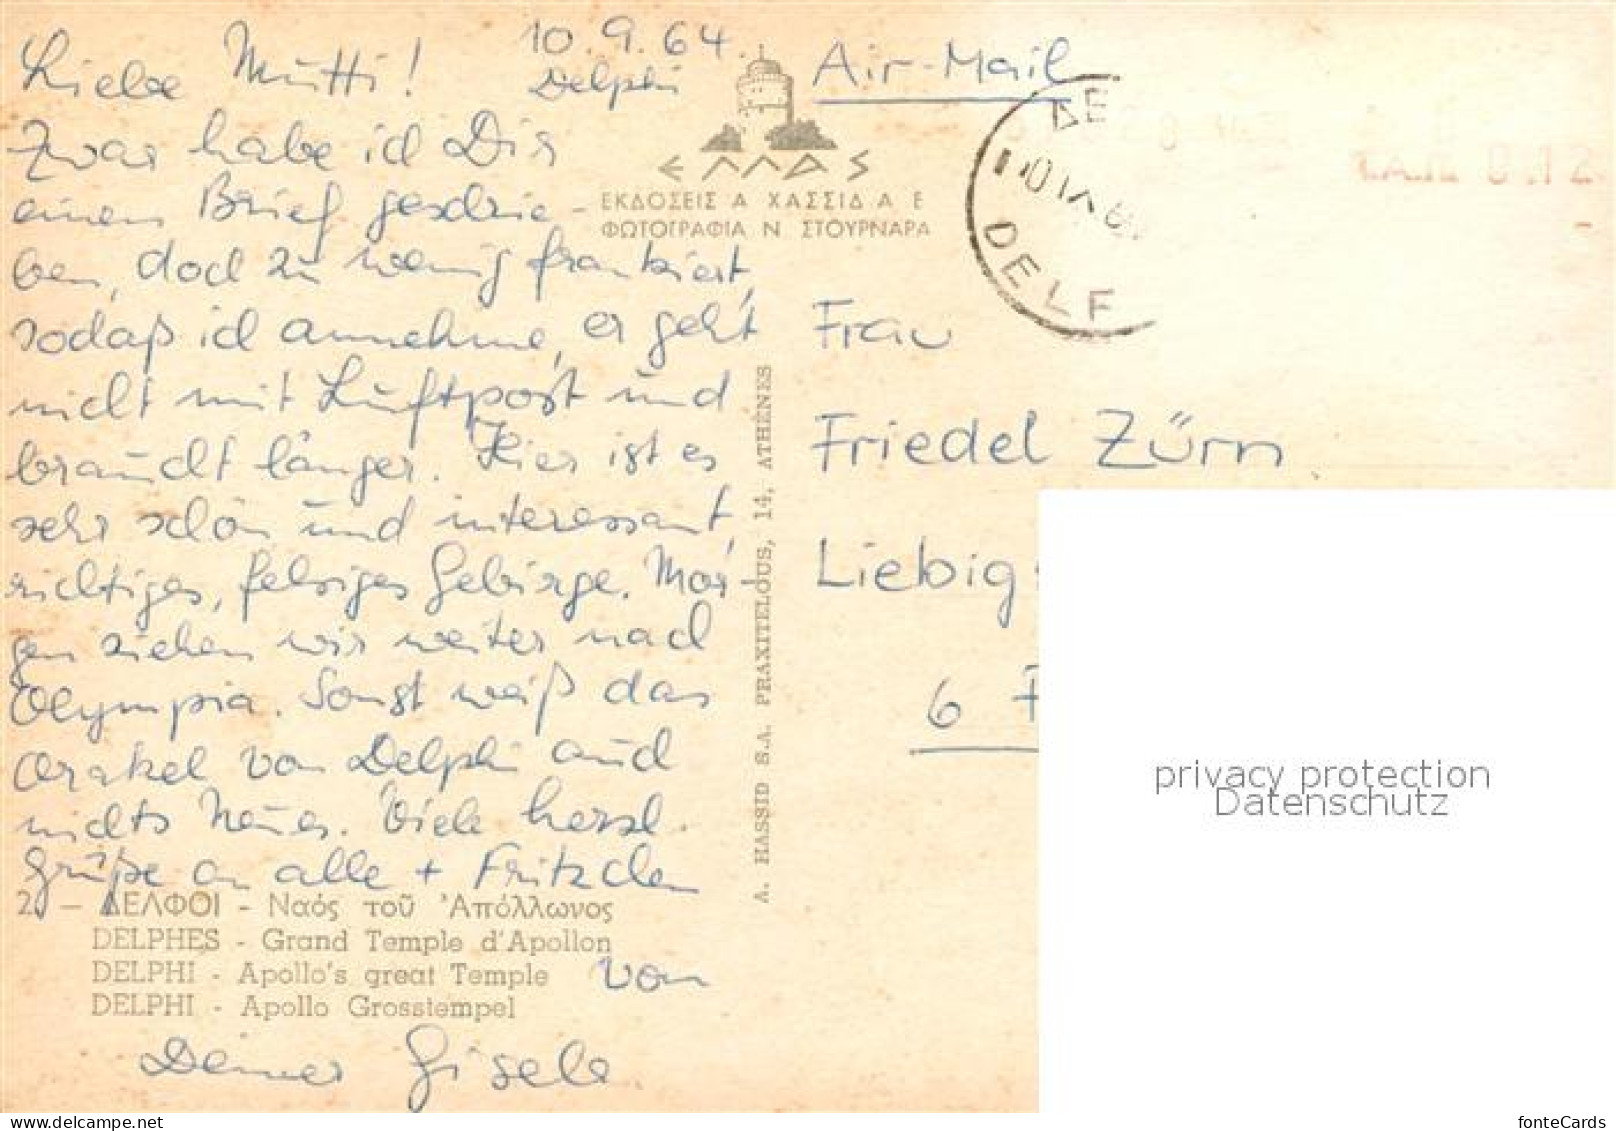 10.9.64.
Delphi
Liebe Mutti!
Zwar habe ich Dir
einen Brief geschrie-
ben, doch zu wenig frankiert,
sodaß ich annehme, er geht
nicht mit Luftpost und
braucht länger. Hier ist es
sehr schön und interessant,
richtiges, felsiges Gebirge. Mor-
gen ziehen wir weiter nach
Olympia. Sonst weiß das
Orakel von Delphi auch
nichts Neues. Viele herzl.
Grüße an alle + Fritzchen
von
Deiner Gisela
ΕΛΛΑΣ
ΕΚΔΟΣΕΙΣ Α ΧΑΣΣΙΔ Α Ε
ΦΩΤΟΓΡΑΦΙΑ Ν ΣΤΟΥΡΝΑΡΑ
2. — ΔΕΛΦΟΙ - Ναός τοῦ Ἀπόλλωνος
DELPHES - Grand Temple d'Apollon
DELPHI - Apollo's great Temple
DELPHI - Apollo Grosstempel
A. HASSID S.A. PRAXITELOUS, 14, ATHÈNES
Air-Mail
ΔΕ
DELF
Frau
Friedel Zürn
Liebig
6 F
privacy protection
Datenschutz
www.delcampe.net
fonteCards